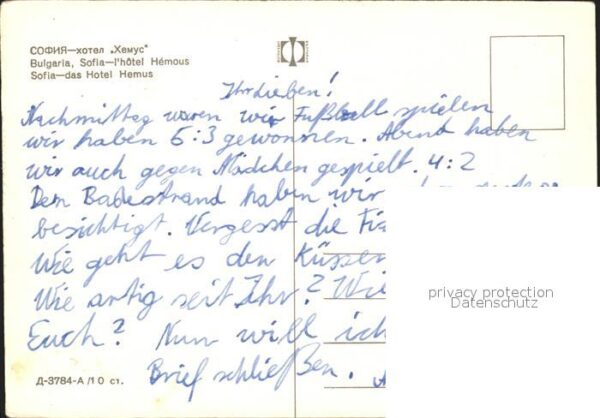 СОФИЯ—хотел „Хемус"
Bulgaria, Sofia—l'hôtel Hémous
Sofia—das Hotel Hemus
Ihr Lieben!
Nachmittag waren wir Fußball spielen
wir haben 5:3 gewonnen. Abend haben
wir auch gegen Mädchen gespielt. 4:2
Den Badestrand haben wir
besichtigt. Vergesst die
Wie geht es den
Wie artig seit Ihr? Wie
Euch? Nun will ich
Brief schließen.
privacy protection
Datenschutz
Д-3784-А/10 ст.